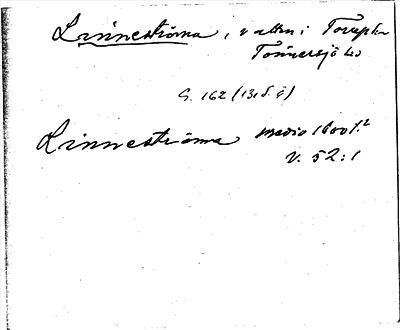 Linneströma, vatten i Torups sn
Tönnersjö hd
G. 162 (131 d. ä)
Linneströma medio 1600 t.
V. 52:1